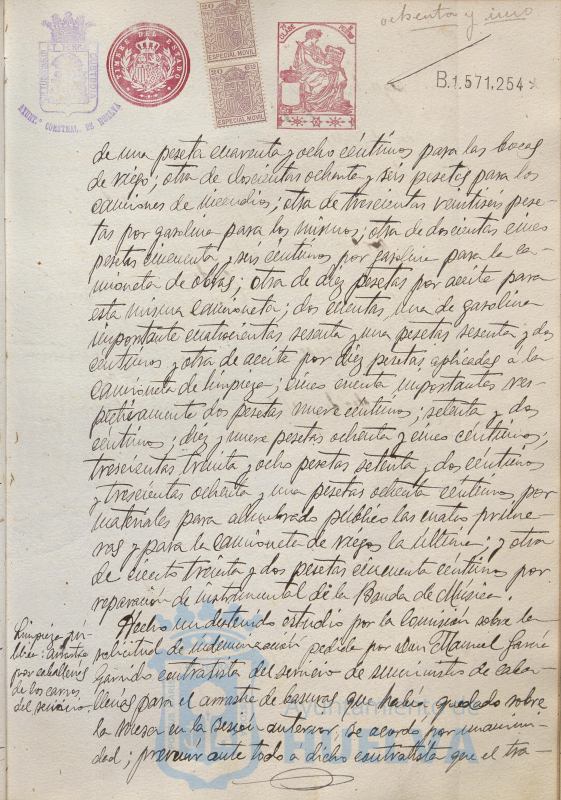 ochenta y uno
20 Cs 20
ESPECIAL MOVIL
20 Cs 20
ESPECIAL MOVIL
TIMBRE DEL ESTADO
AYUNT.º CONSTNAL. DE HUELVA
B.1.571.254
de una peseta cuarenta y ocho céntimos para las bocas
de riego; otra de doscientas ochenta y seis pesetas para los
camiones de incendios; otra de trescientas veintiseis pese-
tas por gasolina para los mismos; otra de doscientas cinco
pesetas cincuenta y seis céntimos por gasolina para la ca-
mioneta de obras; otra de diez pesetas por aceite para
esta misma camioneta; dos cuentas, una de gasolina
importante cuatrocientas sesenta y una pesetas sesenta y dos
céntimos y otra de aceite por diez pesetas aplicadas a la
camioneta de limpieza; cinco cuentas importantes res-
pectivamente dos pesetas nueve céntimos; setenta y dos
céntimos; diez y nueve pesetas ochenta y cinco céntimos;
trescientas treinta y ocho pesetas setenta y dos céntimos
y trescientas ochenta y una pesetas ochenta céntimos, por
materiales para alumbrado público las cuatro prime-
ras y para la camioneta de riegos la última; y otra
de ciento treinta y dos pesetas cincuenta céntimos por
reparación de instrumental de la Banda de Música.
Hecho un detenido estudio por la Comisión sobre la
solicitud de indemnización pedida por Manuel
Garrido contratista del servicio de suministros de caba-
llerías para el arrastre de basuras que había quedado sobre
la mesa en la sesión anterior, se acordó por unanimi-
dad; prevenir ante todo a dicho contratista que el tra-
Limpieza pú-
blica: arrastre
por caballerías
de los carros
del servicio.
Ayuntamiento de
HUELVA